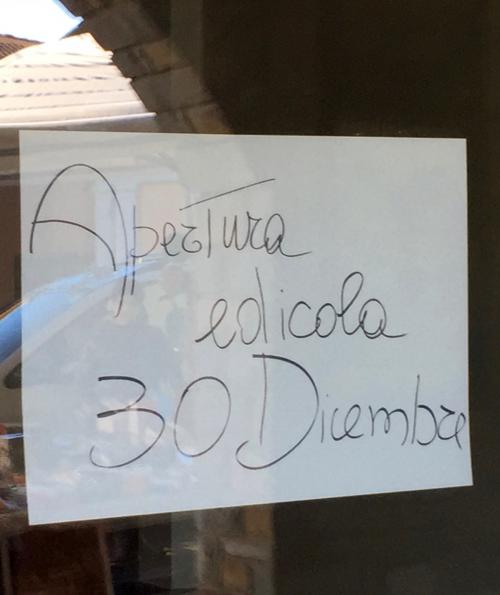 Apertura
edicola
30 Dicembre